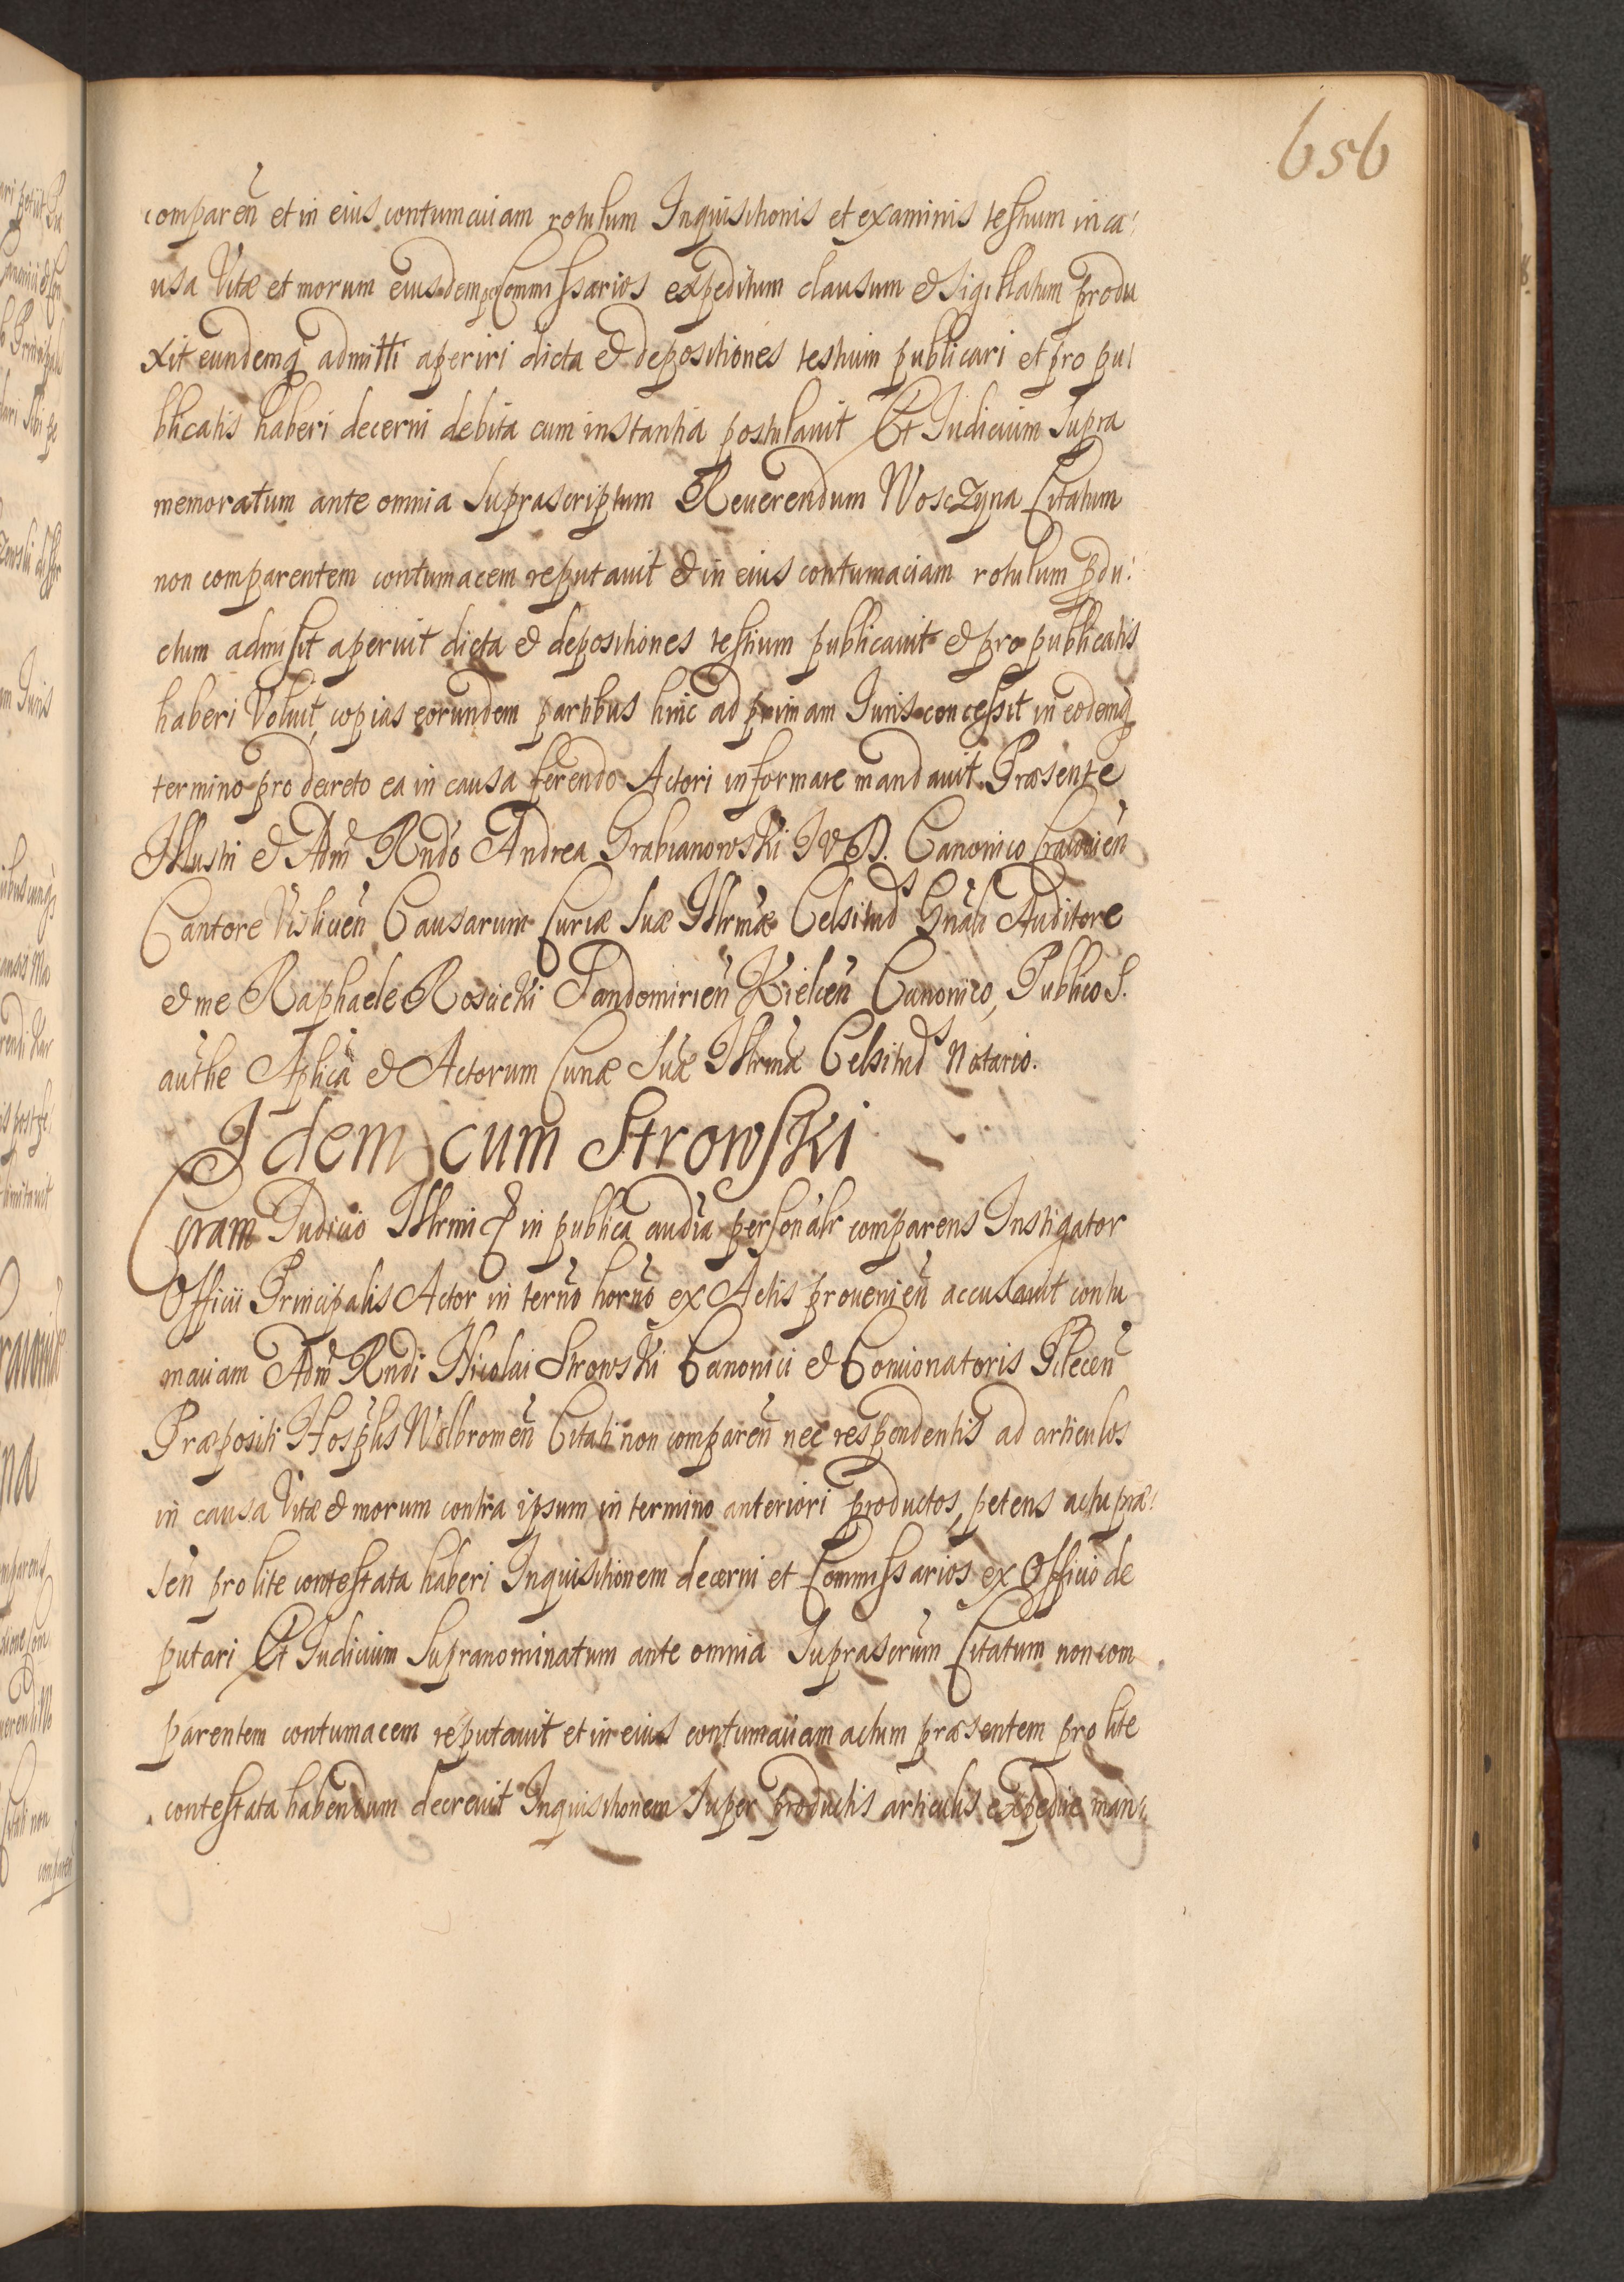 656
comparen̄ et in eius contumaciam rotulum Inquisitionis et examinis testium in ca:
usa Vitæ et morum eiusdem per Commissarios expeditum clausum & Sigillatum produ
xit eundemq́ admitti aperiri dicta & depositiones testium publicari et pro pu
blicatis haberi decerni debita cum instantia postulauit Et Iudicium Supra
memoratum ante omnia Suprascriptum Reuerendum Wosczyna Citatum
non comparentem contumacem reputauit & in eius contumaciam rotulum pdu:
ctum admisit aperuit dicta & depositiones testium publicauit & pro publicatis
haberi Voluit, copias eorundem partibus hinc ad primam Iuris concessit in eodemq́
termino pro decreto ea in causa ferendo Actori informare mandauit Præsente
Illustri & Adm̄ Rndo Andrea Grabianowski IVD. Canonico Cracouien̄
Cantore Vislicien̄ Causarum Curiæ Suæ Illrmæ Celsitud̄s Gn̄ali Auditore
& me Raphaele Roscicki Sandomirien̄ Kielcen̄ Canonico, Publico S.
authe Aplica & Actorum Curiæ Suæ Illrmæ Celsituds Notario.
Idem cum Strowski
Coram Iudicio Illrmi & in publica audia personalr comparens Instigator
Officii Principalis Actor in tern̄o horn̄o ex Actis prouenien̄ accusauit contu
maciam Adm̄ Rndi Nicolai Strowski Canonici & Concionatoris Pilecen̄
Præpositi Hosplis Wolbromen̄ Citati non comparen̄ nec respondentis ad articulos
in causa Vitæ & morum contra ipsum in termino anteriori productos, petens actu præ:
sen̄ pro lite contestata haberi Inquisitionem decerni et Commissarios ex Officio de
putari Et Iudicium Supranominatum ante omnia Suprascrum Citatum non com
parentem contumacem reputauit et in eius contumaciam actum præsentem pro lite
contestata habendum decreuit Inquisitionem Super productis articulis expedire man: